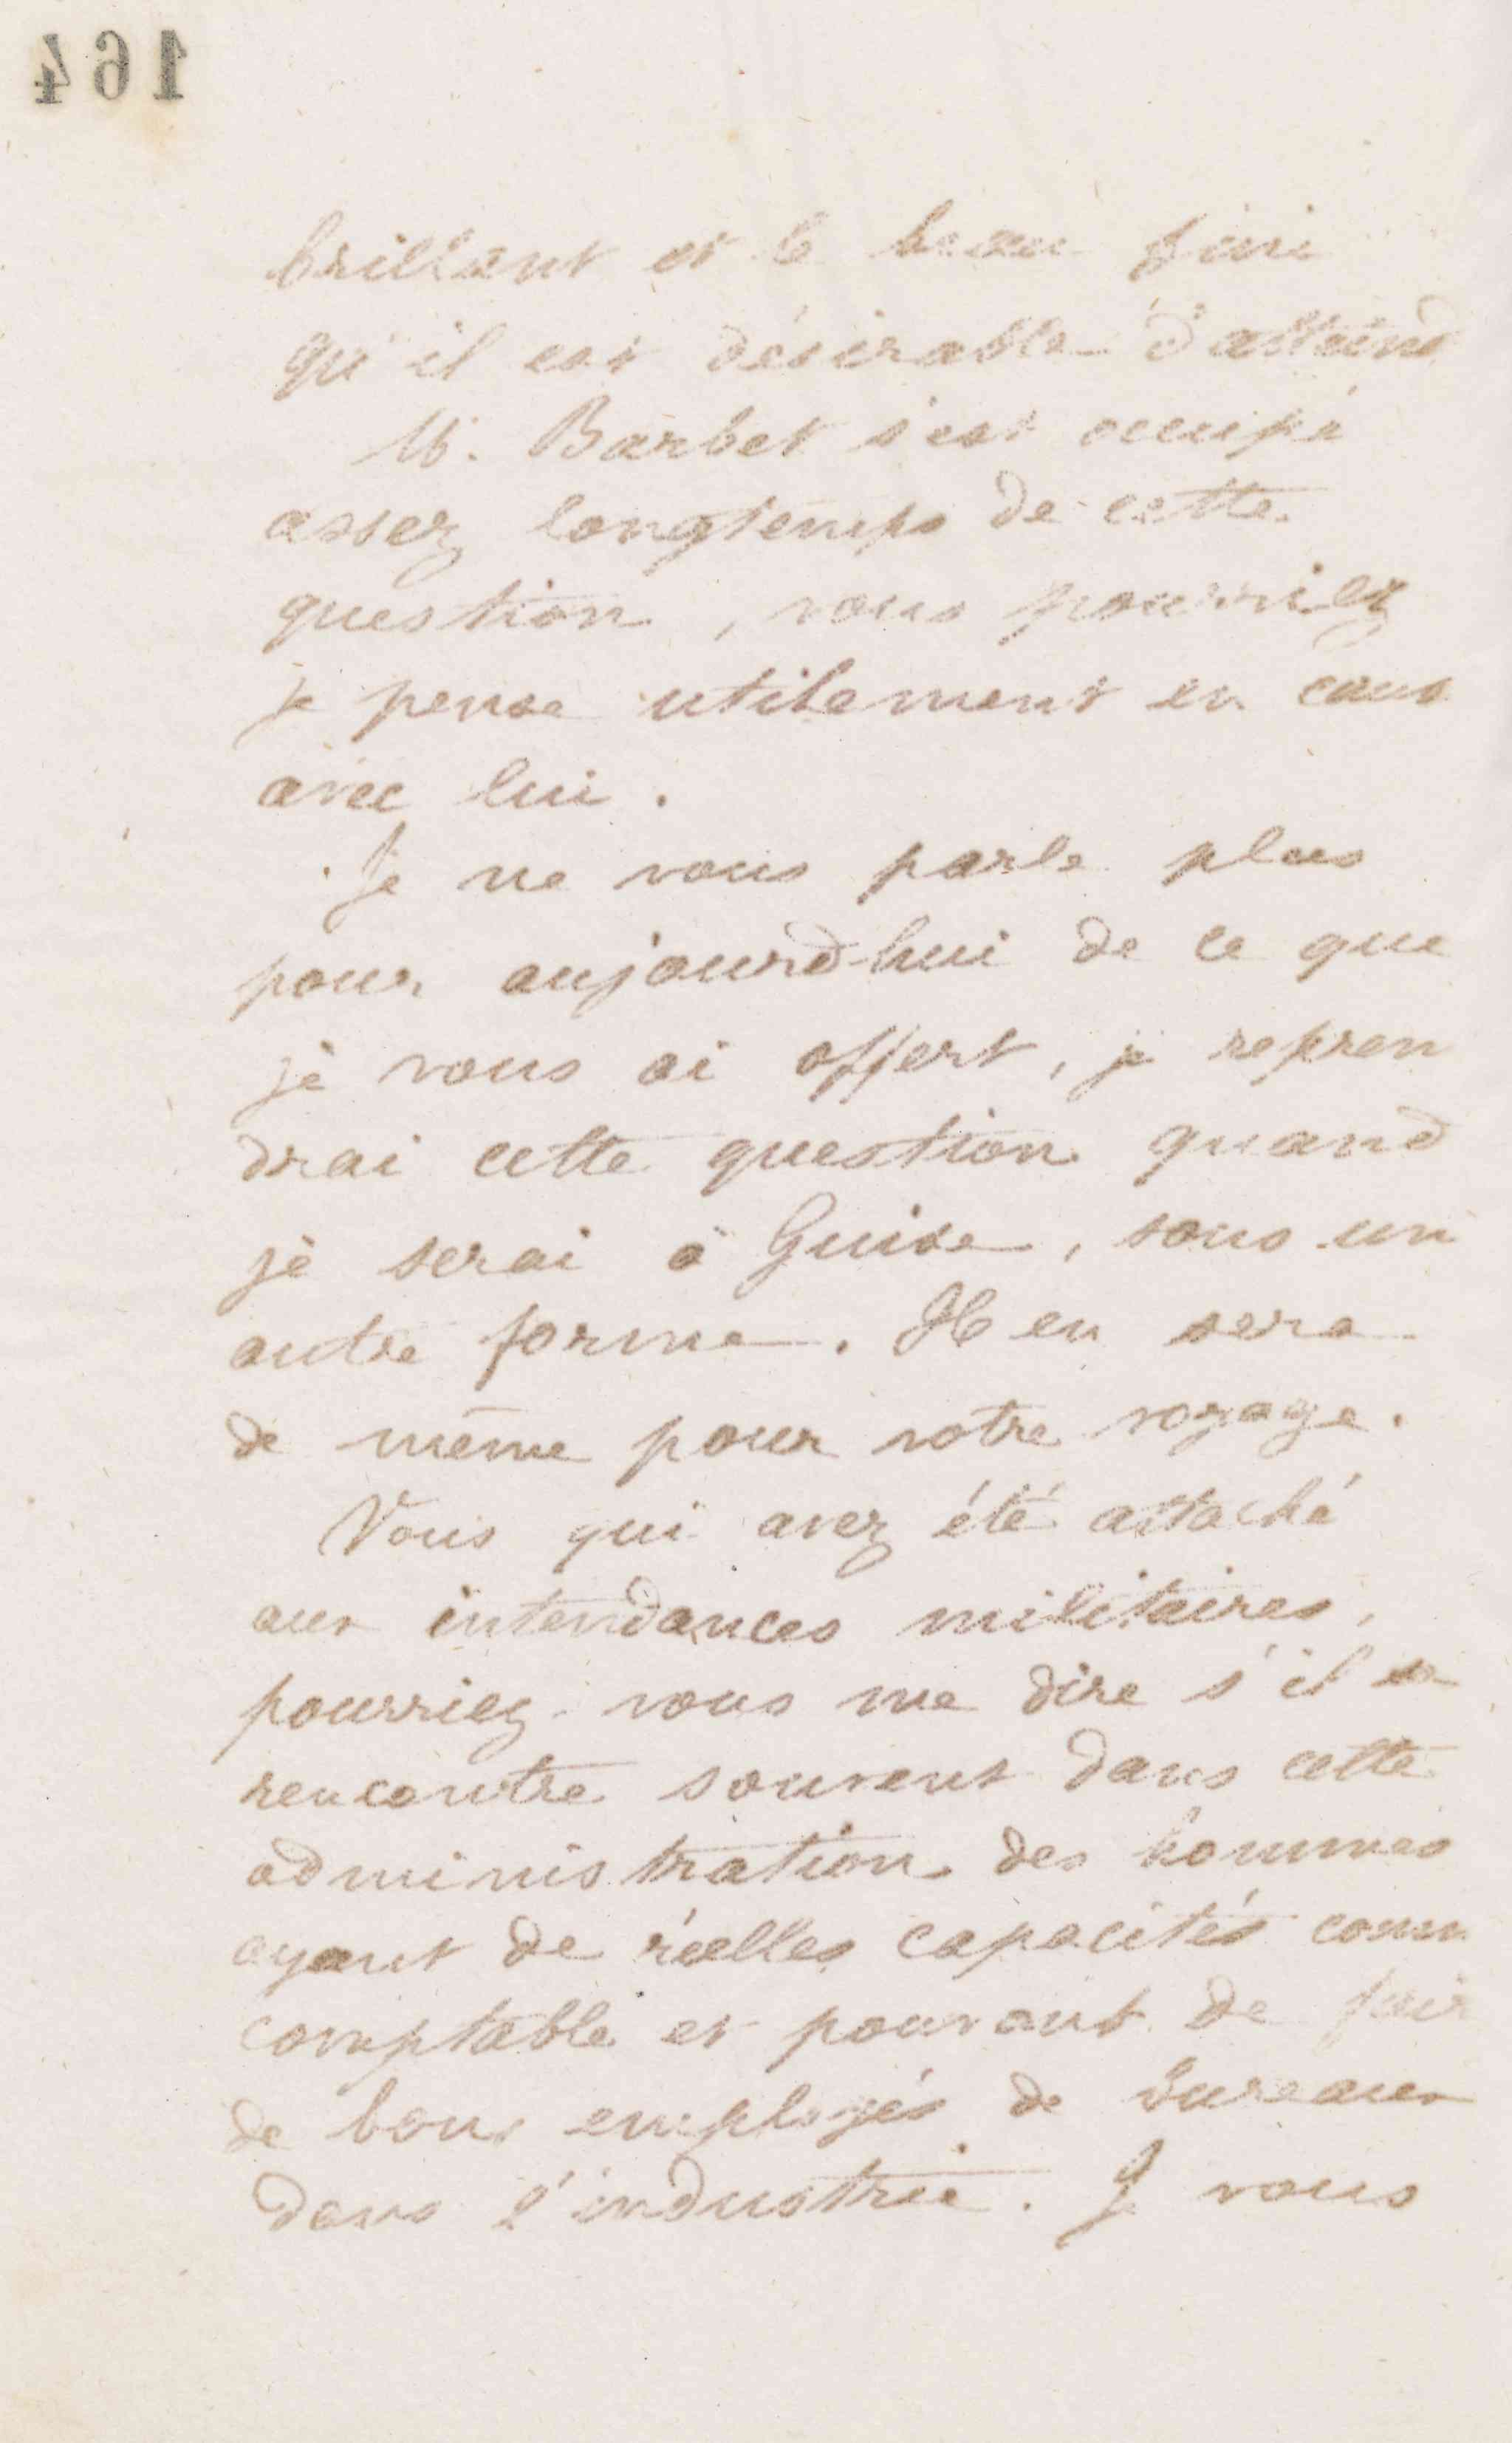 164
brillant et le beau fini
qu'il est désirable d'atteind
M. Barbet s'est occupé
assez longtemps de cette
question, vous pourriez
je pense utilement en caus
avec lui.
Je ne vous parle plus
pour aujourd'hui de ce que
je vous ai offert, je repren
drai cette question quand
je serai à Guise, sous un
autre forme. Il en sera
de même pour votre voyage.
Vous qui avez été attaché
aux intendances militaires,
pourriez-vous me dire s'il se
rencontre souvent dans cette
administration des hommes
ayant de réelles capacités comm
comptable et pouvant de fair
de bons employés de bureaux
dans l'industrie. Je vous